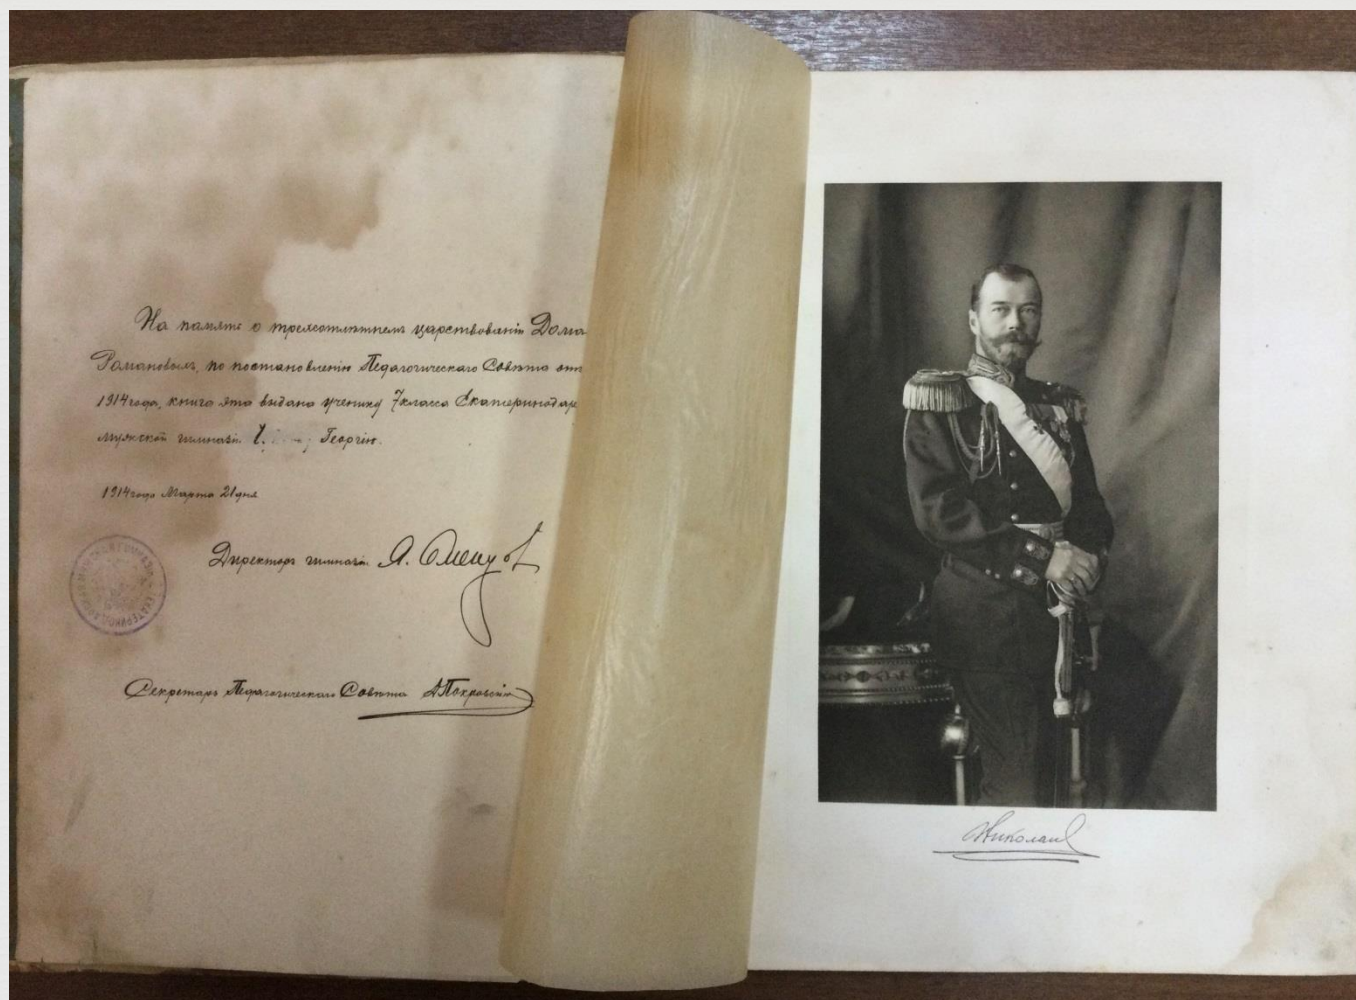 На память о трехсотлѣтнемъ царствованіи Дома
Романовыхъ, по постановленію Педагогическаго Совѣта отъ
1914 года, книга эта выдана ученику 7 класса Екатеринодар
мужской гимназіи Георгію.
1914 года Марта 21 дня
Директоръ гимназіи
Секретарь Педагогическаго Совѣта АПокровскій
Николай